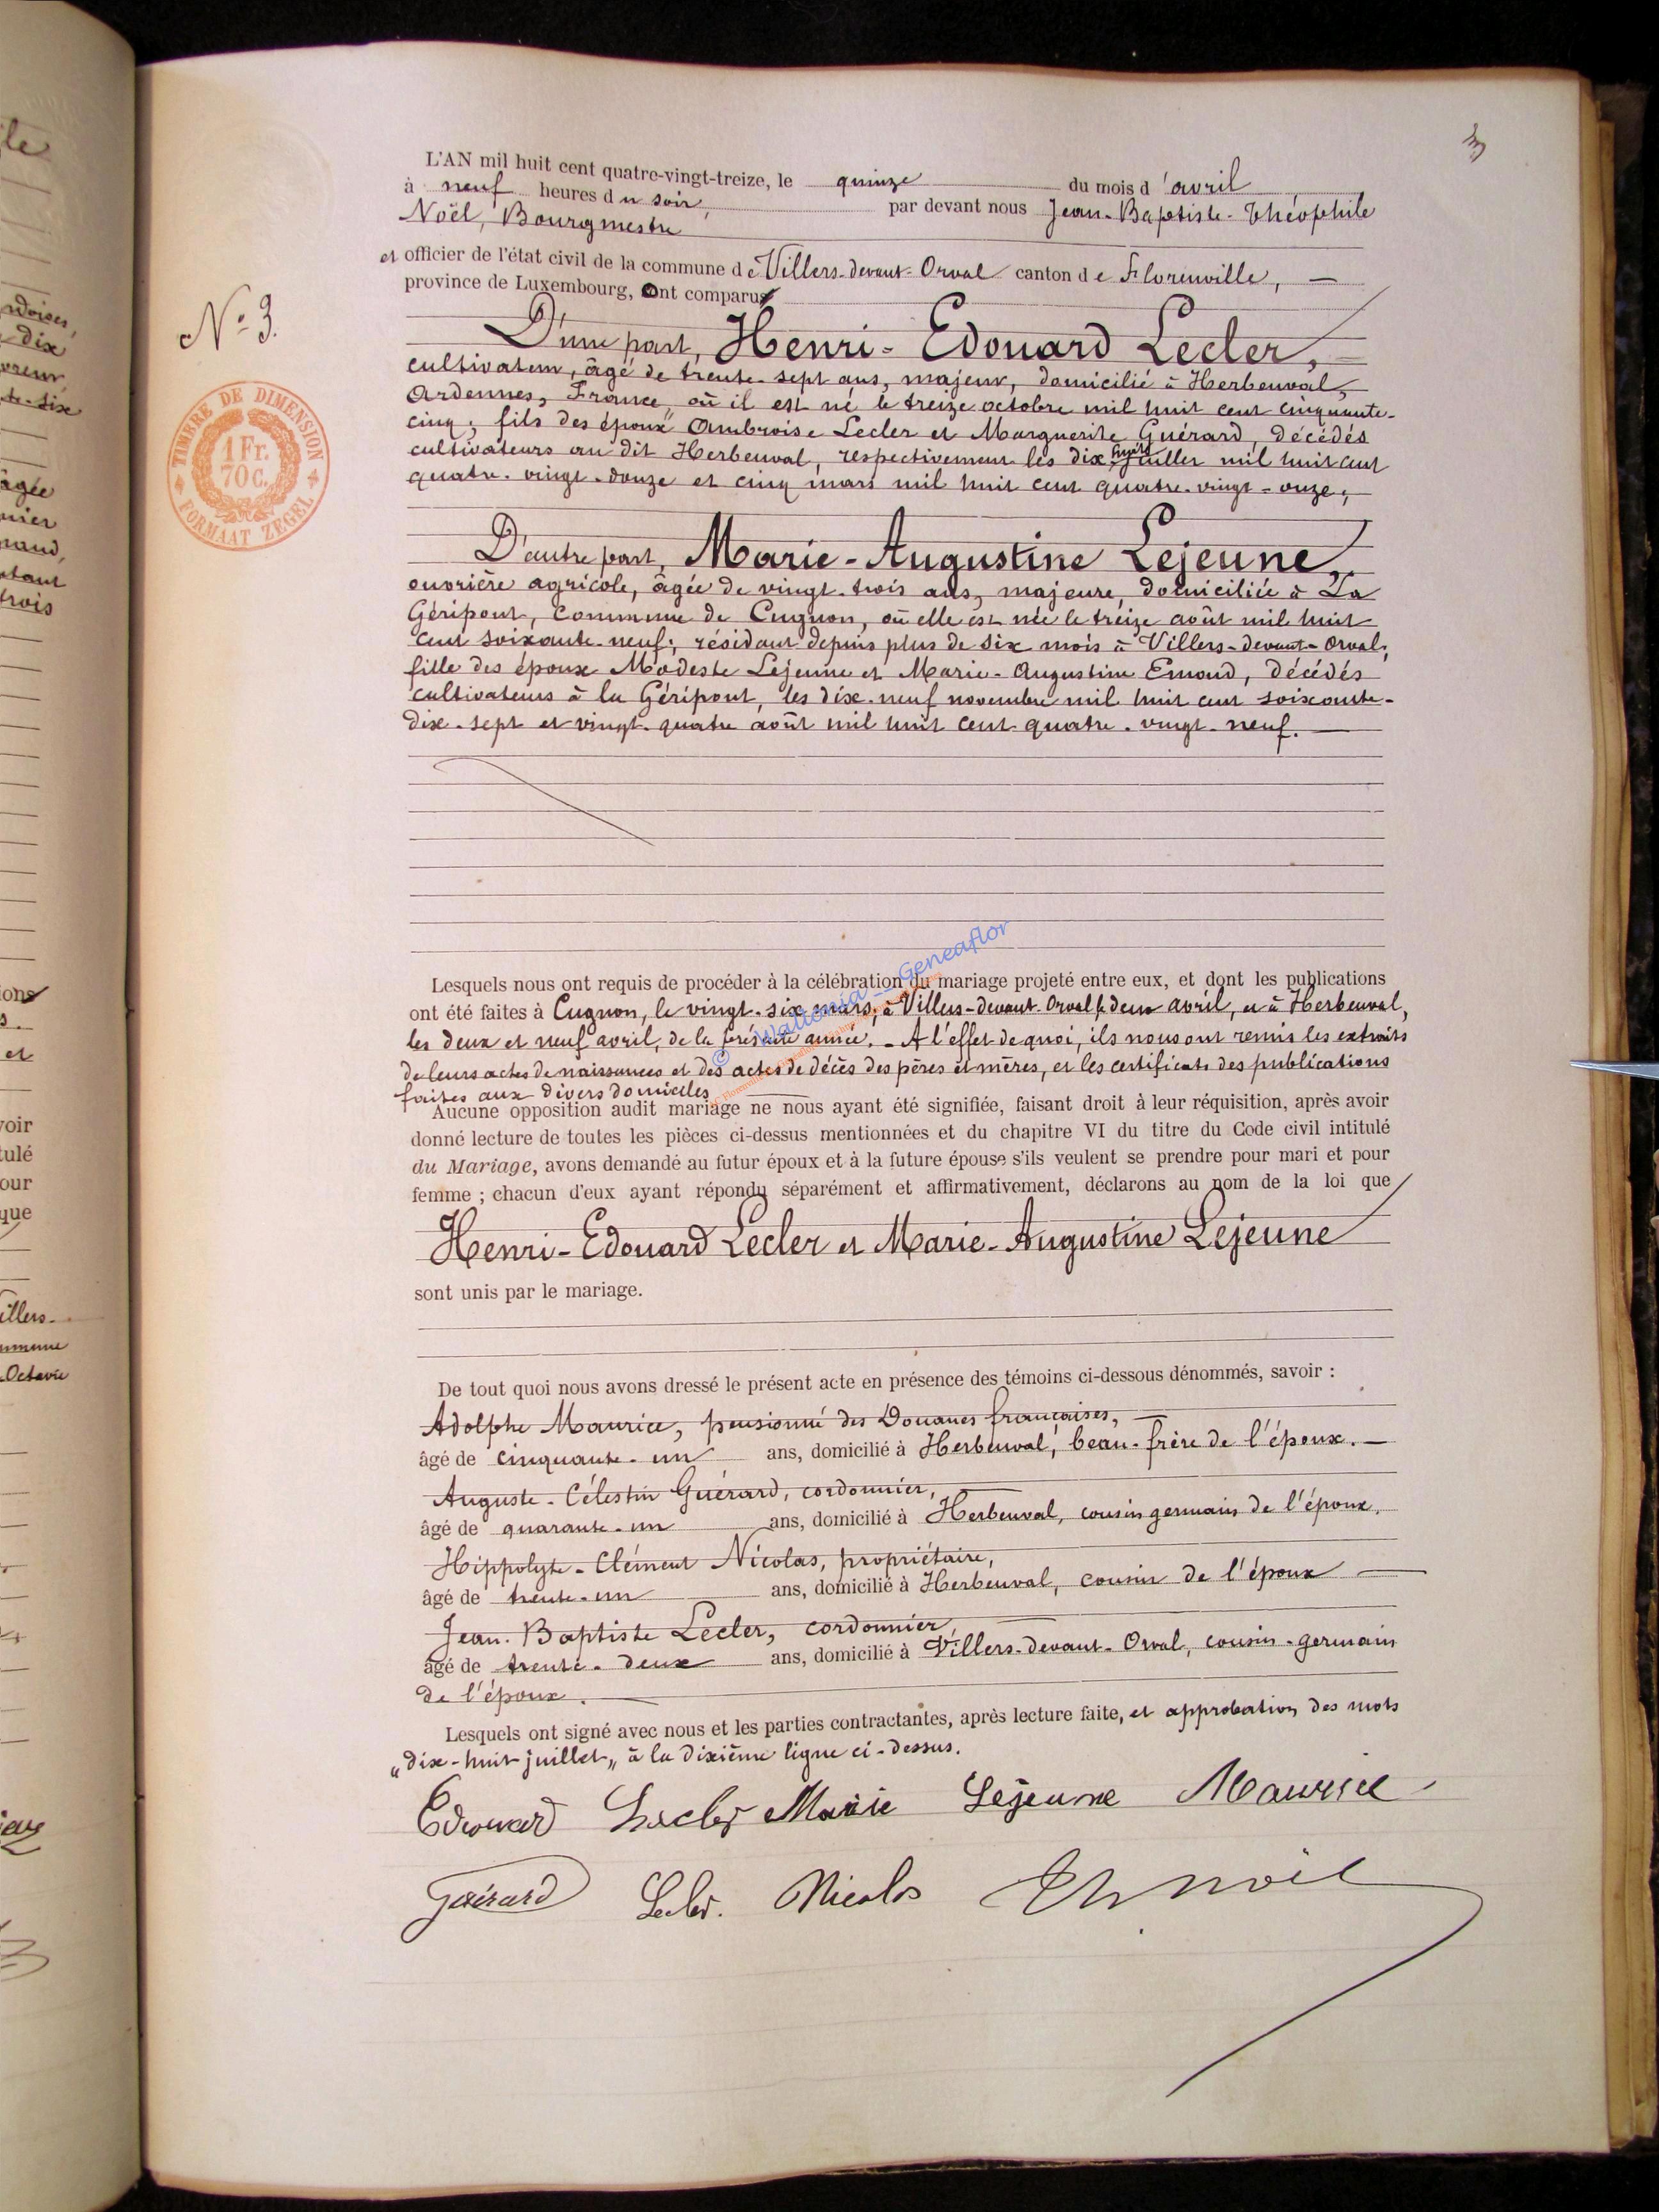 3
L'AN mil huit cent quatre-vingt-treize, le quinze du mois d'avril
à neuf heures du soir, par devant nous Jean-Baptiste-Théophile
Noël, Bourgmestre
et officier de l'état civil de la commune de Villers-devant-Orval canton de Florenville, —
province de Luxembourg, ont comparu
N° 3.
TIMBRE DE DIMENSION
1 Fr.
70 C.
FORMAAT ZEGEL
D'une part, Henri-Edouard Lecler,
cultivateur, âgé de trente-sept ans, majeur, domicilié à Herbeuval,
Ardennes, France, où il est né le treize octobre mil huit cent cinquante-
cinq; fils des époux Ambroise Lecler et Marguerite Guérard, décédés
cultivateurs au dit Herbeuval, respectivement les dix huit juillet mil huit cent
quatre-vingt-douze et cinq mars mil huit cent quatre-vingt-onze;
D'autre part, Marie-Augustine Lejeune,
ouvrière agricole, âgée de vingt-trois ans, majeure, domiciliée à La
Géripont, commune de Cugnon, où elle est née le treize août mil huit
cent soixante-neuf; résidant depuis plus de six mois à Villers-devant-Orval;
fille des époux Modeste Lejeune et Marie-Augustine Emond, décédés
cultivateurs à la Géripont, les dix-neuf novembre mil huit cent soixante-
dix-sept et vingt-quatre août mil huit cent quatre-vingt-neuf.
Lesquels nous ont requis de procéder à la célébration du mariage projeté entre eux, et dont les publications
ont été faites à Cugnon, le vingt-six mars, à Villers-devant-Orval le deux avril, et à Herbeuval,
les deux et neuf avril, de la présente année. – A l'effet de quoi, ils nous ont remis les extraits
de leurs actes de naissances et des actes de décès des pères et mères, et les certificats des publications
faites aux divers domiciles
© Wallonia - Geneaflor
Aucune opposition audit mariage ne nous ayant été signifiée, faisant droit à leur réquisition, après avoir
donné lecture de toutes les pièces ci-dessus mentionnées et du chapitre VI du titre du Code civil intitulé
du Mariage, avons demandé au futur époux et à la future épouse s'ils veulent se prendre pour mari et pour
femme ; chacun d'eux ayant répondu séparément et affirmativement, déclarons au nom de la loi que
Henri-Edouard Lecler et Marie-Augustine Lejeune
sont unis par le mariage.
De tout quoi nous avons dressé le présent acte en présence des témoins ci-dessous dénommés, savoir :
Adolphe Maurice, pensionné des Douanes françaises,
âgé de cinquante-un ans, domicilié à Herbeuval, beau-frère de l'époux.
Auguste-Célestin Guérard, cordonnier,
âgé de quarante-un ans, domicilié à Herbeuval, cousin germain de l'époux.
Hippolyte-Clément Nicolas, propriétaire,
âgé de trente-un ans, domicilié à Herbeuval, cousin de l'époux
Jean-Baptiste Lecler, cordonnier,
âgé de trente-deux ans, domicilié à Villers-devant-Orval, cousin-germain
de l'époux.
Lesquels ont signé avec nous et les parties contractantes, après lecture faite, et approbation des mots
„dix-huit juillet„ à la dixième ligne ci-dessus.
Edouard Lecler Marie Lejeune Maurice
Guérard Lecler. Nicolas Th Noël